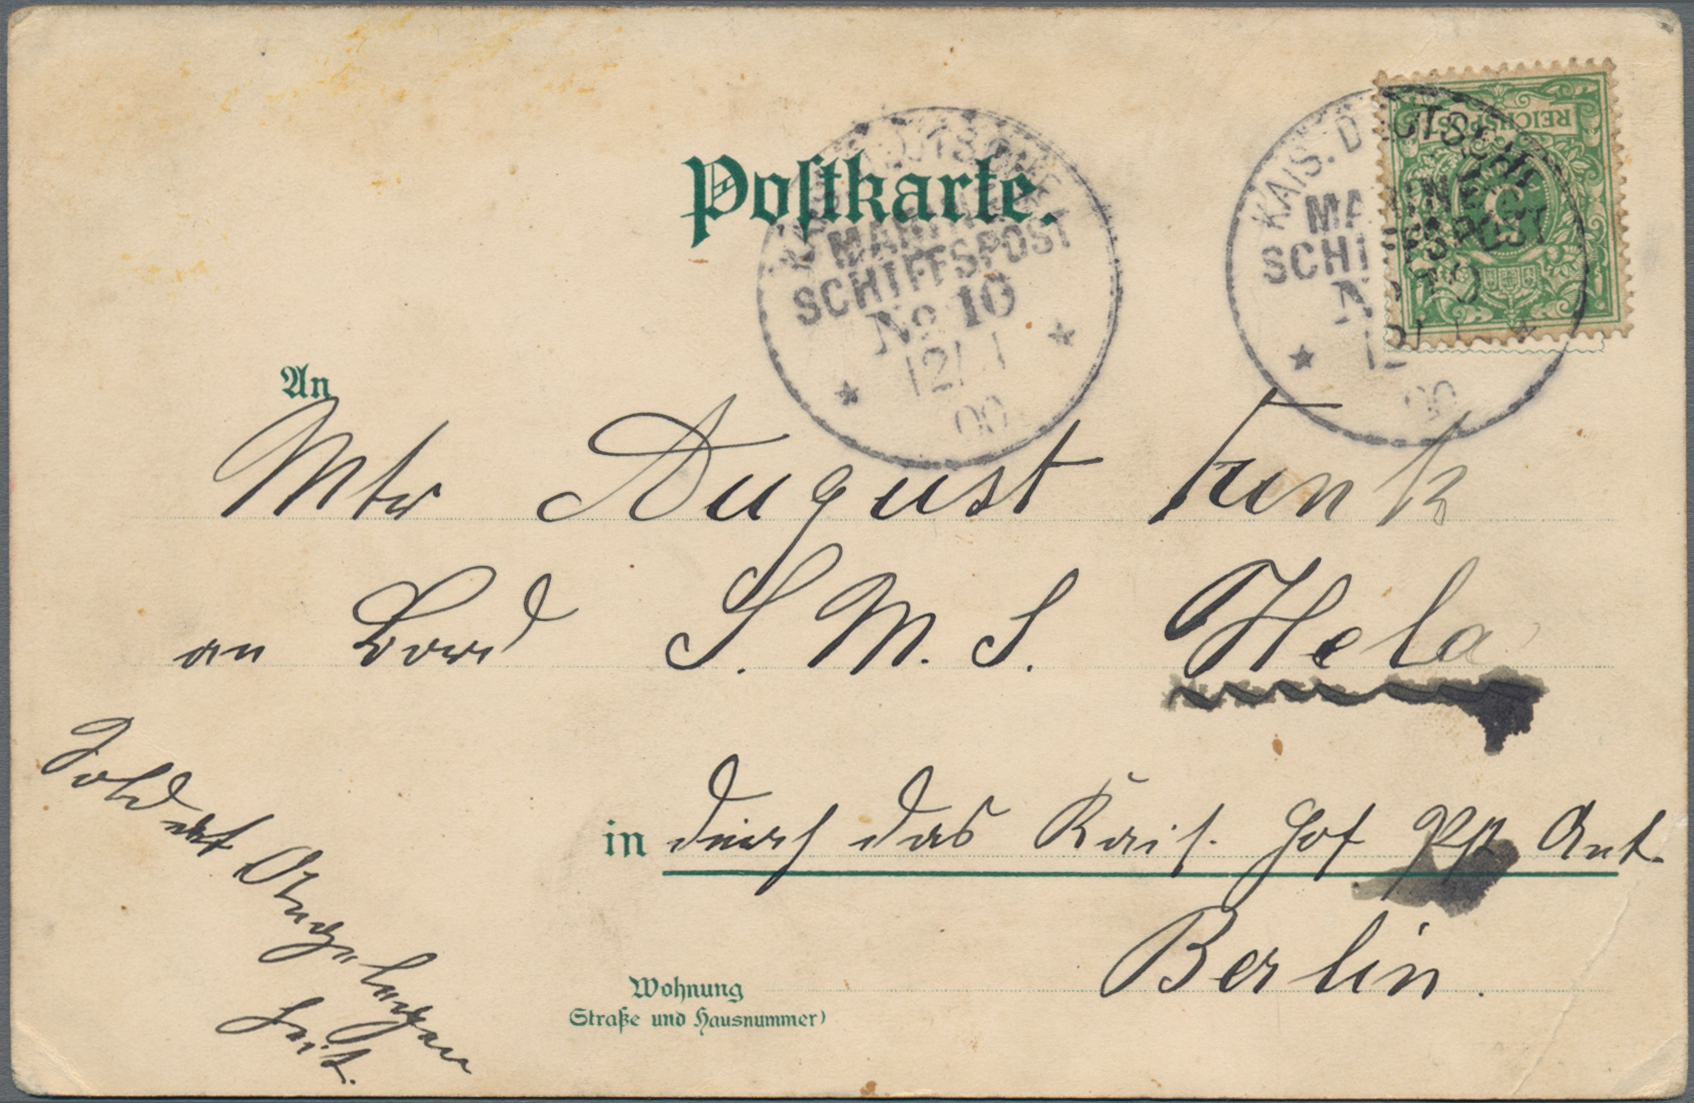 Postkarte.
KAIS. DEUTSCHE
MARINE
SCHIFFSPOST
No 10
12/1
00
KAIS. DEUTSCHE
MARINE
SCHIFFSPOST
No 10
00
REICHSPOST
5
An
Mtr August Funk
an Bord S. M. S. Hela
in durch das Kais. Hof Pst Amt.
Berlin.
Soldat Angelegen
heit.
Wohnung
Straße und Hausnummer)